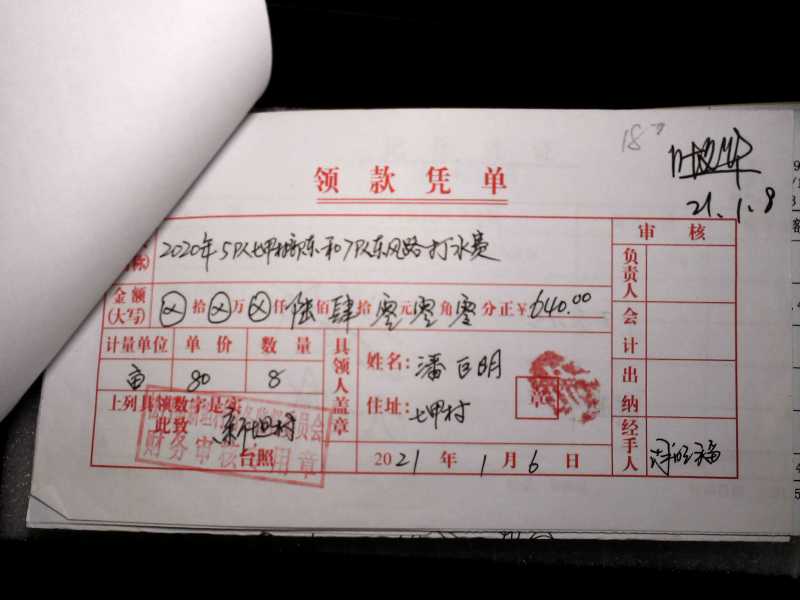 187
21.1.8
领款凭单
2020年5队七甲村新东和7队东风路打水费
审核
负责人
金额(大写) ⊗拾⊗万⊗仟陆佰肆拾零元零角零分正¥640.00
会计
计量单位 单价 数量
亩 80 8
具领人盖章
姓名:潘日明
住址:七甲村
出纳
上列具领数字是实
此致 新坦村
台照
财务审核专用章
2021年1月6日
经手人